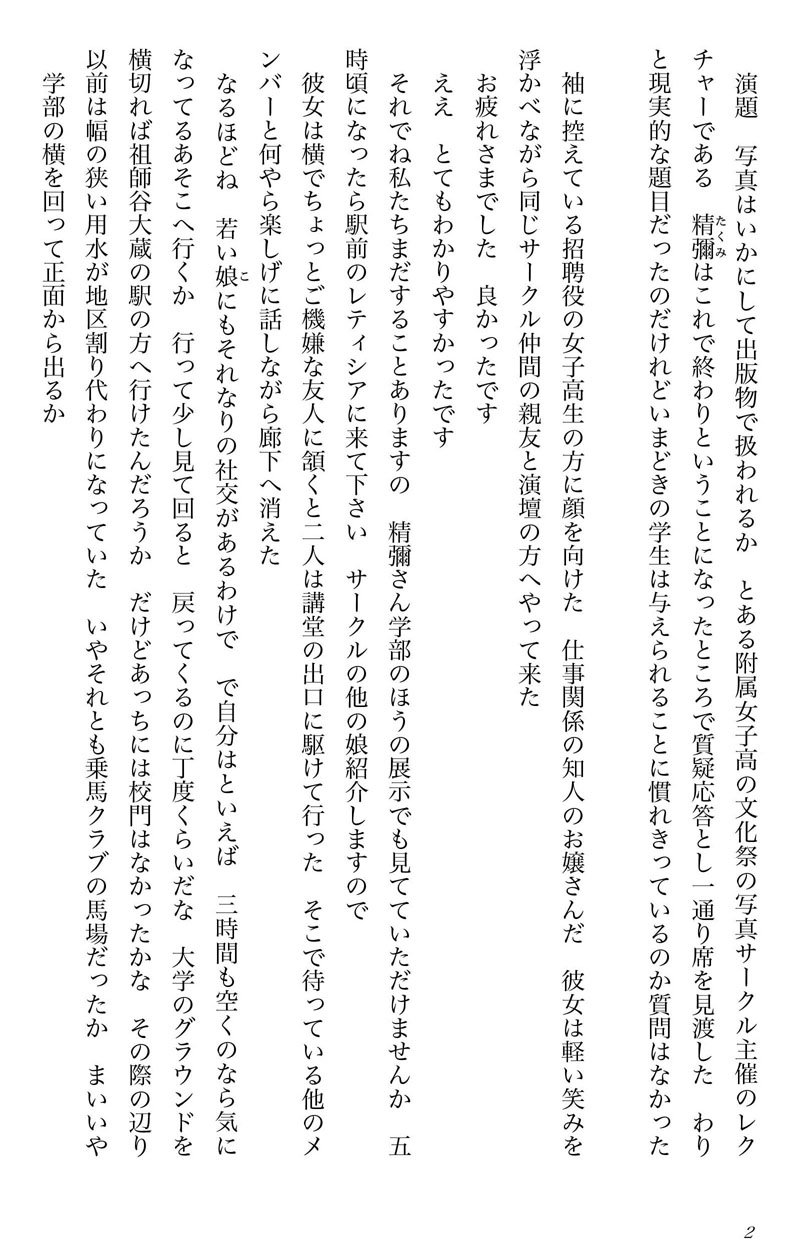 演題　写真はいかにして出版物で扱われるか　とある附属女子高の文化祭の写真サークル主催のレク
チャーである　精彌はこれで終わりということになったところで質疑応答とし一通り席を見渡した　わり
たくみ
と現実的な題目だったのだけれどいまどきの学生は与えられることに慣れきっているのか質問はなかった
袖に控えている招聘役の女子高生の方に顔を向けた　仕事関係の知人のお嬢さんだ　彼女は軽い笑みを
浮かべながら同じサークル仲間の親友と演壇の方へやって来た
お疲れさまでした　良かったです
ええ　とてもわかりやすかったです
それでね私たちまだすることありますの　精彌さん学部のほうの展示でも見てていただけませんか　五
時頃になったら駅前のレティシアに来て下さい　サークルの他の娘紹介しますので
彼女は横でちょっとご機嫌な友人に頷くと二人は講堂の出口に駆けて行った　そこで待っている他のメ
ンバーと何やら楽しげに話しながら廊下へ消えた
なるほどね　若い娘にもそれなりの社交があるわけで　で自分はといえば　三時間も空くのなら気に
こ
なってるあそこへ行くか　行って少し見て回ると　戻ってくるのに丁度くらいだな　大学のグラウンドを
横切れば祖師谷大蔵の駅の方へ行けたんだろうか　だけどあっちには校門はなかったかな　その際の辺り
以前は幅の狭い用水が地区割り代わりになっていた　いやそれとも乗馬クラブの馬場だったか　まいいや
学部の横を回って正面から出るか
2